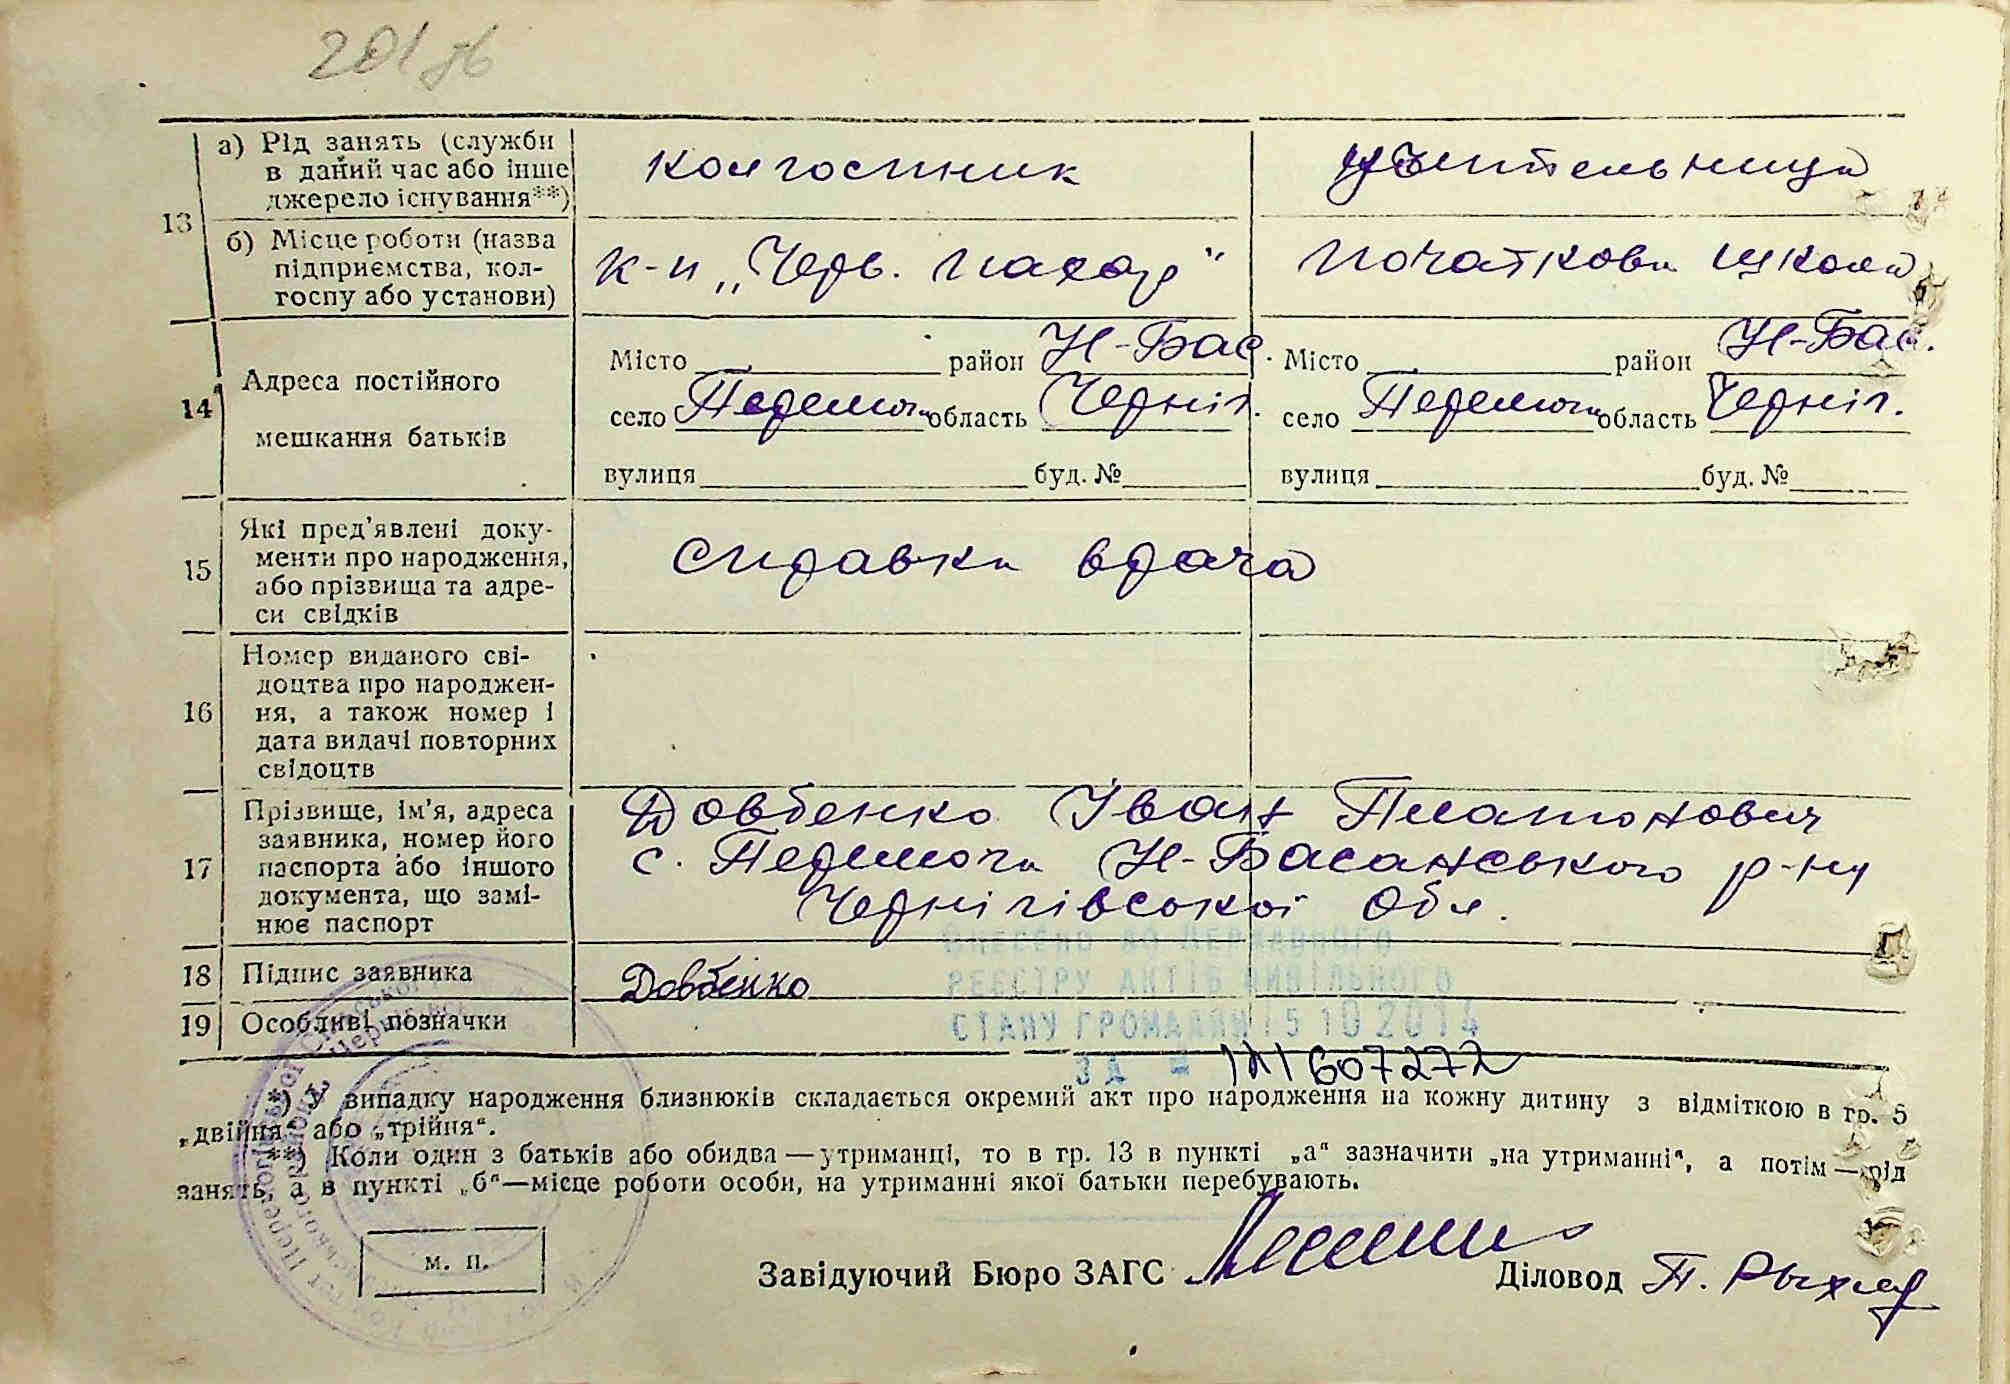 201
а) Рід занять (служби в даний час або інше джерело існування**)
колгоспник
учительниця
13
б) Місце роботи (назва підприємства, колгоспу або установи)
к-п „Черв. Пахар"
початкова школа
14
Адреса постійного мешкання батьків
Місто район Н-Бас.
село Перемога область Черніг.
вулиця буд. №
Місто район Н-Бас.
село Перемога область Черніг.
вулиця буд. №
15
Які пред'явлені доку-
менти про народження,
або прізвища та адре-
си свідків
справка врача
16
Номер виданого сві-
доцтва про народжен-
ня, а також номер і
дата видачі повторних
свідоцтв
17
Прізвище, ім'я, адреса
заявника, номер його
паспорта або іншого
документа, що замі-
нює паспорт
Довбенко Іван Платонович
с. Перемога Н-Басанського р-ну
Чернігівської обл.
18 Підпис заявника
Довбенко
19 Особливі позначки
ВНЕСЕНО ДО ДЕРЖАВНОГО
РЕЄСТРУ АКТІВ ЦИВІЛЬНОГО
СТАНУ ГРОМАДЯН 15 10 2014
ЗА №
*) У випадку народження близнюків складається окремий акт про народження на кожну дитину з відміткою в гр. 5
„двійня" або „трійня".
**) Коли один з батьків або обидва — утриманці, то в гр. 13 в пункті „а" зазначити „на утриманні", а потім — рід
занять, а в пункті „б" — місце роботи особи, на утриманні якої батьки перебувають.
М. П.
Завідуючий Бюро ЗАГС
Діловод П.